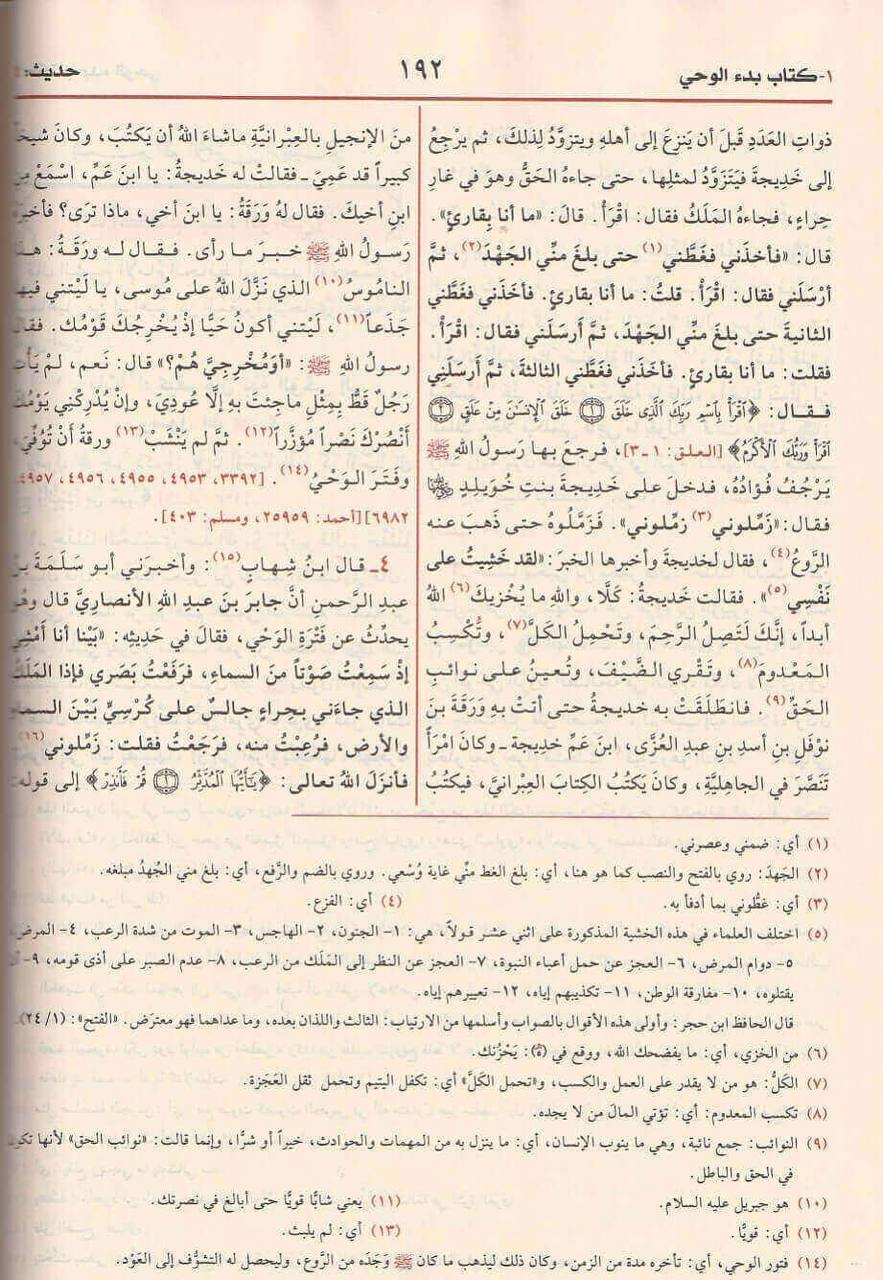 ١-كتاب بدء الوحي
١٩٢
حديث:
ذواتِ العَدَدِ قبلَ أن يَنزِعَ إلى أهلهِ ويتزوَّدُ لِذلكَ، ثم يرْجِعُ
إلى خَديجةَ فيَتَزوَّدُ لمثلِها، حتى جاءهُ الحَقُّ وهوَ في غارِ
حِراءٍ، فجاءهُ المَلَكُ فقال: اقْرَأْ. قالَ: «ما أنا بِقارئٍ».
قال: «فأخذَني فغَطَّني(١) حتى بلغَ منِّي الجَهْدَ(٢)، ثمَّ
أرْسَلَني فقال: اقْرَأْ. قلتُ: ما أنا بقارئٍ. فأخذَني فغَطَّني
الثانيةَ حتى بلغَ منِّي الجَهْدَ، ثمَّ أرسلَني فقال: اقْرَأْ.
فقلت: ما أنا بقارئٍ. فأخذَني فغَطَّني الثالثةَ، ثمَّ أَرسَلَني
فـقـال: ﴿ٱقْرَأْ بِٱسْمِ رَبِّكَ ٱلَّذِى خَلَقَ ١ خَلَقَ ٱلْإِنسَـٰنَ مِنْ عَلَقٍ ٢
ٱقْرَأْ وَرَبُّكَ ٱلْأَكْرَمُ﴾ [العلق: ١-٣]، فرجعَ بها رَسولُ اللهِ ﷺ
يَرْجُفُ فُؤادُه، فدخلَ على خَديجةَ بنتِ خُوَيلِدٍ رضي الله عنها
فقال: «زَمِّلوني(٣) زمِّلوني». فزَمَّلُوهُ حتى ذَهبَ عنه
الرَّوعُ(٤)، فقال لخديجةَ وأخبرها الخبرَ: «لقد خَشِيتُ على
نَفْسِي(٥)». فقالت خديجةُ: كَلَّا، واللهِ ما يُخْزِيكَ(٦) اللهُ
أبداً، إنَّكَ لَتَصِلُ الرَّحِمَ، وتَحْمِلُ الكَلَّ(٧)، وتُكْسِبُ
المَعْدومَ(٨)، وتَقْرِي الضَّيْفَ، وتُعينُ على نوائبِ
الحَقِّ(٩). فانطلَقَتْ به خديجةُ حتى أتتْ بهِ وَرَقَةَ بنَ
نوْفَلِ بنِ أسدِ بنِ عبدِ العُزَّى، ابنَ عَمِّ خديجةَ ـ وكان امْرَأً
تَنَصَّرَ في الجاهليَّةِ، وكانَ يَكتُبُ الكِتابَ العِبْرانيَّ، فيَكتُبُ
منَ الإنجيلِ بالعِبْرانيَّةِ ماشاءَ اللهُ أن يَكتُبَ، وكانَ شيخاً
كبيراً قد عَمِيَ ـ فقالتْ له خديجةُ: يا ابنَ عَمِّ، اسْمَعْ
ابنِ أخيكَ. فقال لهُ وَرَقةُ: يا ابنَ أخي، ماذا ترَى؟
رَسولُ اللهِ ﷺ خبرَ ما رأى. فقال له ورقةُ:
الناموسُ(١٠) الذي نَزَّلَ اللهُ على مُوسى، يا لَيْتَني فيها
جَذَعاً(١١)، لَيْتَني أكونُ حَيًّا إذْ يُخْرِجُكَ قَوْمُك.
رسولُ اللهِ ﷺ: «أوَمُخْرِجِيَّ هُمْ؟» قال: نَعم، لمْ
رَجُلٌ قَطُّ بِمِثْلِ ماجِئتَ بهِ إلَّا عُودِيَ، وإنْ يُدْرِكْنِي
أنْصُرْكَ نَصْراً مُؤزَّراً(١٢). ثمَّ لم يَنْشَبْ(١٣) ورقةُ أنْ تُوُفِّيَ،
وفَتَرَ الوَحْيُ(١٤). [٣٣٩٢، ٤٩٥٣، ٤٩٥٥، ٤٩٥٦، ٤٩٥٧،
٦٩٨٢][أحمد: ٢٥٩٥٩، ومسلم: ٤٠٣].
٤ـ قال ابنُ شِهابٍ(١٥): وأخبرَني أبو سَلَمَةَ
عبدِ الرَّحمنِ أنَّ جابرَ بنَ عبدِ اللهِ الأنصاريَّ قال
يحدِّثُ عن فَتْرَةِ الوَحْي، فقالَ في حَديثِه: «بَيْنا أنا
إذْ سَمِعْتُ صَوْتاً منَ السماءِ، فرَفَعْتُ بَصَري فإذا المَلَكُ
الذي جاءَني بحِراءٍ جالسٌ على كُرْسِيٍّ بَيْنَ
والأرضِ، فرُعِبْتُ منه، فرَجَعْتُ فقلت: زَمِّلوني(١٦).
فأنزلَ اللهُ تعالى: ﴿يَـٰٓأَيُّهَا ٱلْمُدَّثِّرُ ١ قُمْ فَأَنذِرْ﴾ إلى قوله:
(١) أي: ضمني وعصرني.
(٢) الجَهدَ: روي بالفتح والنصب كما هو هنا، أي: بلغ الغط منِّي غاية وُسْعي. وروي بالضم والرَّفع، أي: بلغ مني الجُهدُ مبلغه.
(٣) أي: غطُّوني بما أدفأ به. (٤) أي: الفزع.
(٥) اختلف العلماء في هذه الخشية المذكورة على اثني عشر قولاً، هي: ١- الجنون، ٢- الهاجس، ٣- الموت من شدة الرعب، ٤- المرض،
٥- دوام المرض، ٦- العجز عن حمل أعباء النبوة، ٧- العجز عن النظر إلى المَلَك من الرعب، ٨- عدم الصبر على أذى قومه، ٩-
يقتلوه، ١٠- مفارقة الوطن، ١١- تكذيبهم إياه، ١٢- تعييرهم إياه.
قال الحافظ ابن حجر: وأولى هذه الأقوال بالصواب وأسلمها من الارتياب: الثالث واللذان بعده، وما عداهما فهو معترَض. «الفتح»: (١/ ٢٤).
(٦) من الخزي، أي: ما يفضحك الله، ووقع في (ه): يَحْزُنك.
(٧) الكَلُّ: هو من لا يقدر على العمل والكسب، و«تحمل الكَلَّ» أي: تكفل اليتيم وتحمل ثقل العَجَزة.
(٨) تكسب المعدوم: أي: تؤتي المالَ من لا يجده.
(٩) النوائب: جمع نائبة، وهي ما ينوب الإنسان، أي: ما ينزل به من المهمات والحوادث، خيراً أو شرًّا، وإنما قالت: «نوائب الحق» لأنها
في الحق والباطل.
(١٠) هو جبريل عليه السلام. (١١) يعني شابًّا قويًّا حتى أبالغ في نصرتك.
(١٢) أي: قويًّا. (١٣) أي: لم يلبث.
(١٤) فتور الوحي، أي: تأخره مدة من الزمن، وكان ذلك ليذهب ما كان ﷺ وَجَدَه من الرَّوع، وليحصل له التشوُّف إلى العَوْد.